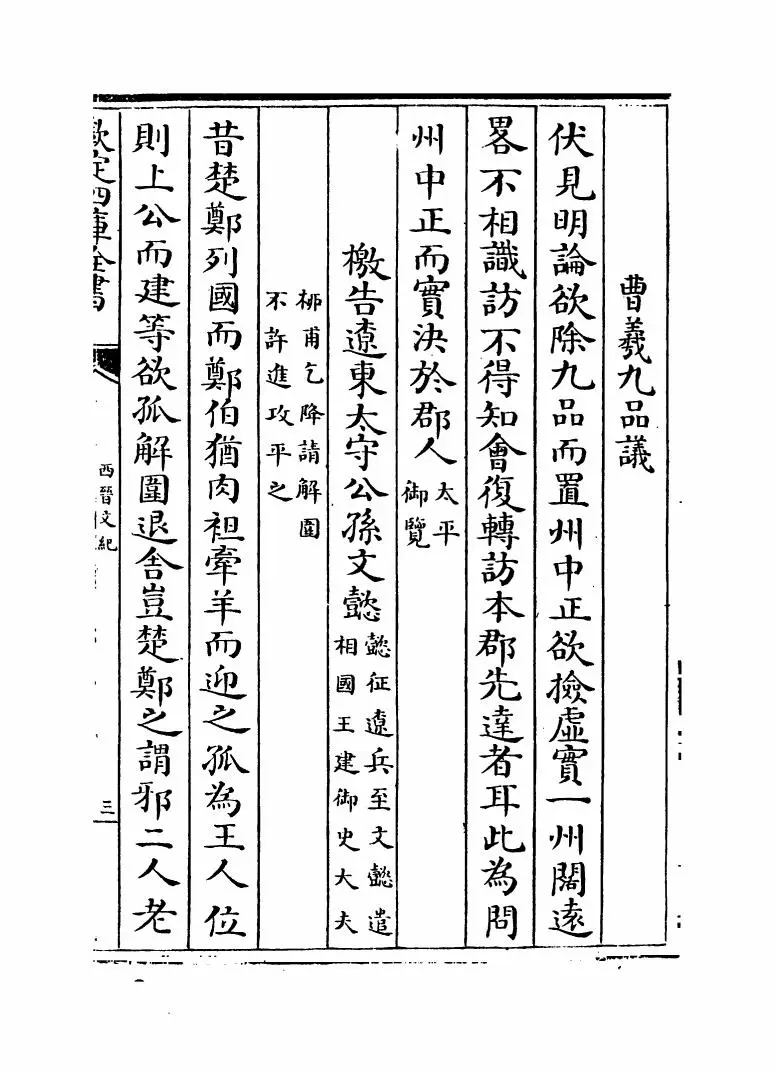 曹羲九品議
伏見明論欲除九品而置州中正欲撿虛實一州闊遠
畧不相識訪不得知會復轉訪本郡先達者耳此為問
州中正而實決於郡人太平
御覽
檄告遼東太守公孫文懿懿征遼兵至文懿遣
相國王建御史大夫
栁甫乞降請解圍
不許進攻平之
昔楚鄭列國而鄭伯猶肉袒牽羊而迎之孤為王人位
則上公而建等欲孤解圍退舍豈楚鄭之謂邪二人老
欽定四庫全書
西晉文紀
三